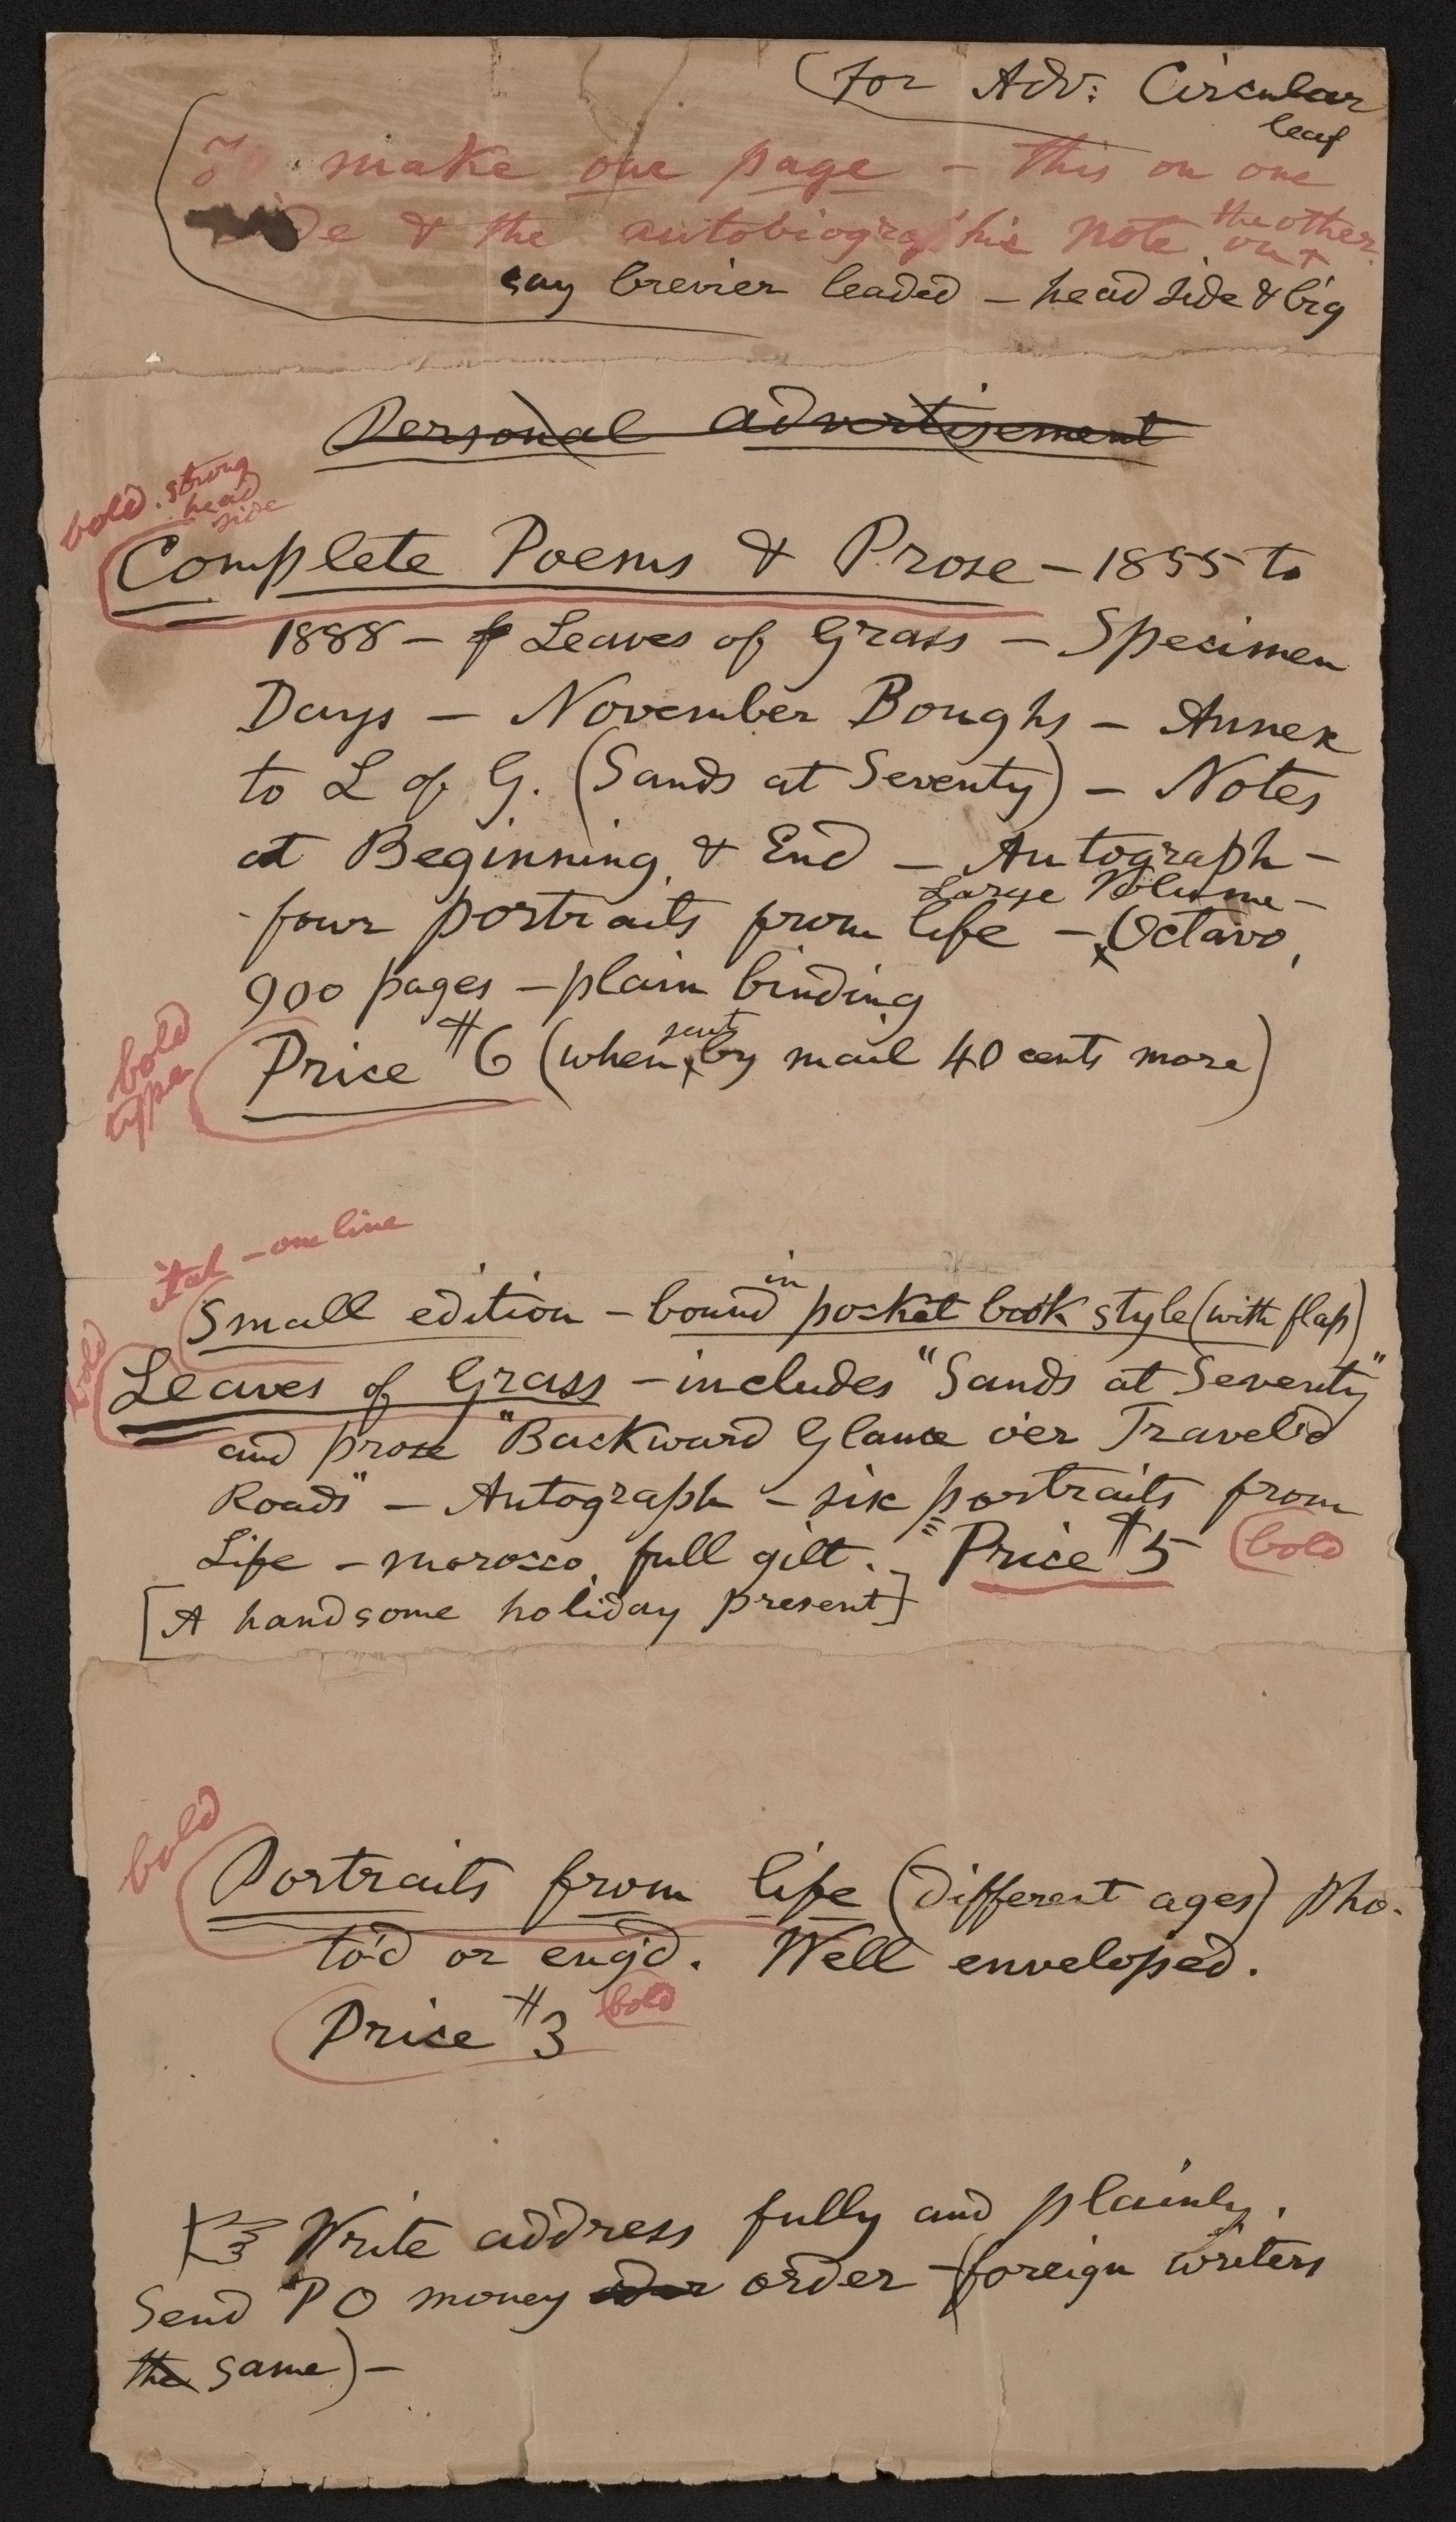 (For Adv: Circular
leaf
To make one page – this on one
side & the autobiographic note on the other
say brevier leaded – head side & big
Personal advertisement
bold. strong
head
side
Complete Poems & Prose – 1855 to
1888 – Leaves of Grass – Specimen
Days – November Boughs – Annex
to L of G. (Sands at Seventy) – Notes
at Beginning & End – Autograph –
Large Volume –
four portraits from life – Octavo,
900 pages – plain binding
bold
type
Price $6 (when sent by mail 40 cents more)
ital – one line
Small edition – bound in pocket book style (with flap)
bold
Leaves of Grass – includes "Sands at Seventy"
and prose "Backward Glance o'er Travel'd
Roads" – Autograph – six portraits from
Life – morocco, full gilt. Price $5 bold
[A handsome holiday present]
bold
Portraits from life (different ages) pho-
to'd or eng'd. Well enveloped.
Price $3 bold
☞ Write address fully and plainly.
Send P O money order order – (foreign writers
the same) –